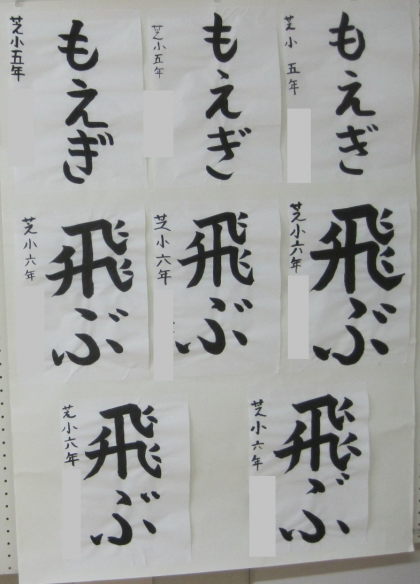 もえぎ
芝小五年
もえぎ
芝小五年
もえぎ
芝小五年
飛ぶ
芝小六年
飛ぶ
芝小六年
飛ぶ
芝小六年
飛ぶ
芝小六年
飛ぶ
芝小六年